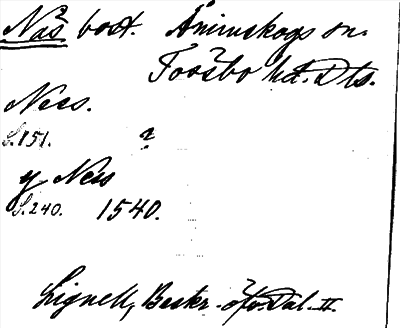 Näs bost. Ånimskogs sn.
Tössbo hd. Dls.
Ness.
S. 151. ?
y Ness
S. 240. 1540.
Lignell, Beskr. öfv. Dal. II.